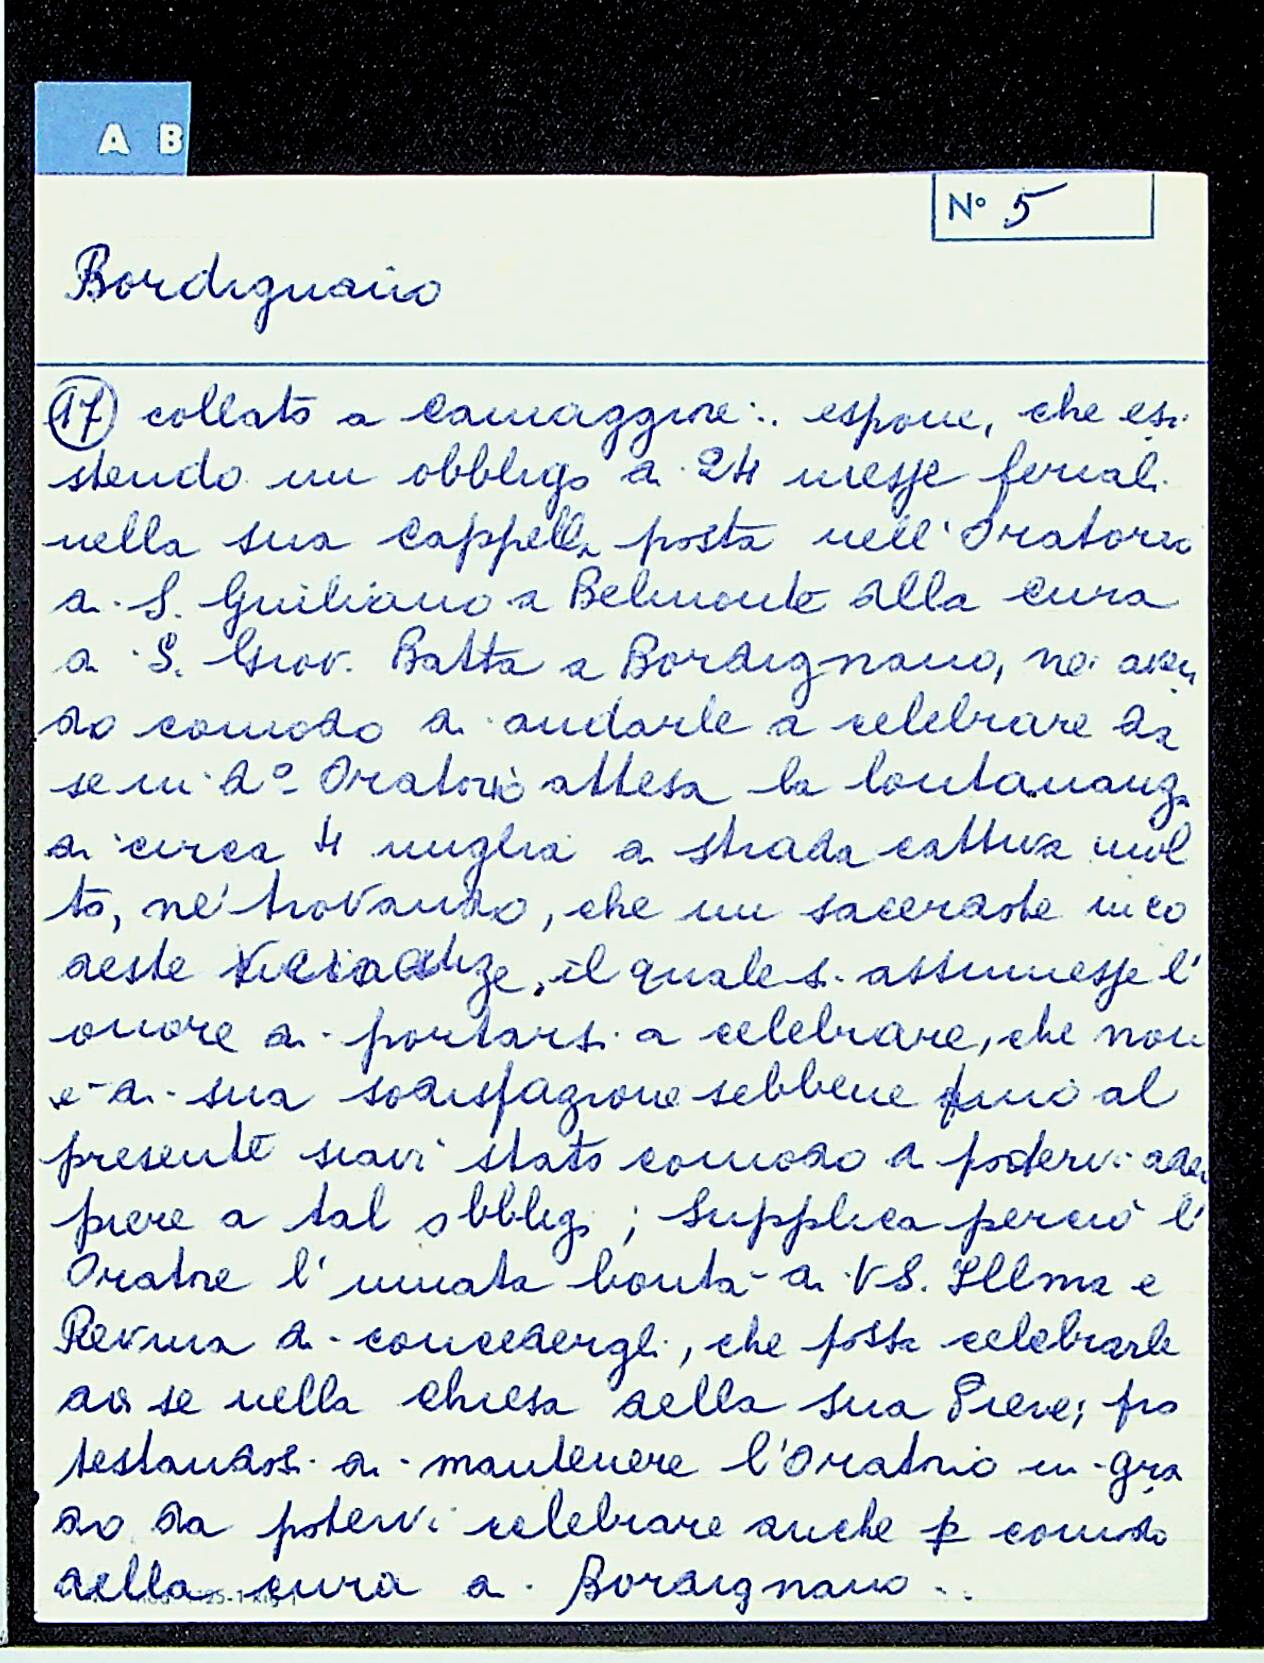 A B
N° 5
Bordignano
(17) collato a Camaggiore:. espone, che esi
stendo un obbligo di 24 messe feriali
nella sua Cappella posta nell'Oratorio
di S. Giuliano a Belmonte alla Cura
di S. Giov. Batta a Bordignano, nè aven
do comodo di andarle a celebrare da
se in dº Oratorio attesa la lontananza
di circa 4 miglia di strada cattiva mol
to, nè trovando, che un sacerdote in co
deste vicinanze, il quale si assumesse l'
onore di portarsi a celebrare, che non
è di sua sodisfazione sebbene fino al
presente siavi stato comodo di potervi adem
piere a tal obbligo; Supplica perciò l'
Oratore l'innata bontà di VS. Illma e
Revma di concedergli, che possa celebrarle
da se nella Chiesa della sua Pieve; pro
testandosi di mantenere l'Oratorio in gra
do da potervi celebrare anche p comodo
della cura di Bordignano..